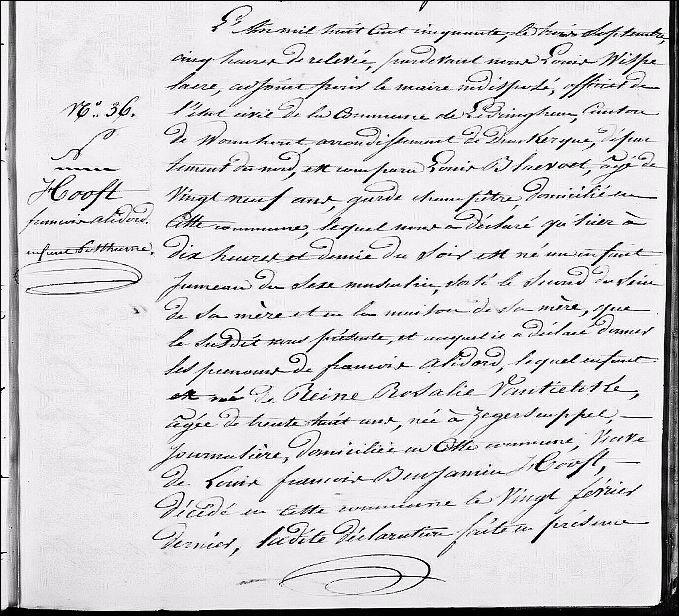 N.º 36.
N
Hooft
françois alidord.
enfant Posthume.
L'An mil huit cent cinquante, le trois Septembre,
cinq heures de relevée, pardevant nous Louis Wispe
laere, adjoint pour le maire indisposé, officier de
l'état civil de la Commune de Ledringhem, Canton
de Wormhout arrondissement de Dunkerque, dépar
tement du nord, est comparu Louis Blaevoet, âgé de
Vingt neuf ans, garde champêtre, domicilié en
Cette commune, lequel nous a déclaré qu'hier à
dix heures et demie du soir est né un enfant
jumeau du sexe masculin, sorti le second du sein
de sa mère et en la maison de sa mère, que
le susdit nous présente, et auquel il a déclaré donner
les prénoms de françois alidord, lequel enfant
est né de Reine Rosalie
âgée de trente huit ans, née à Zegerscappel,
Journalière, domiciliée en Cette commune, Veuve
de Louis françois Benjamin Hooft,
décédé en cette commune le Vingt février
dernier, Susdite déclaration faite en présence